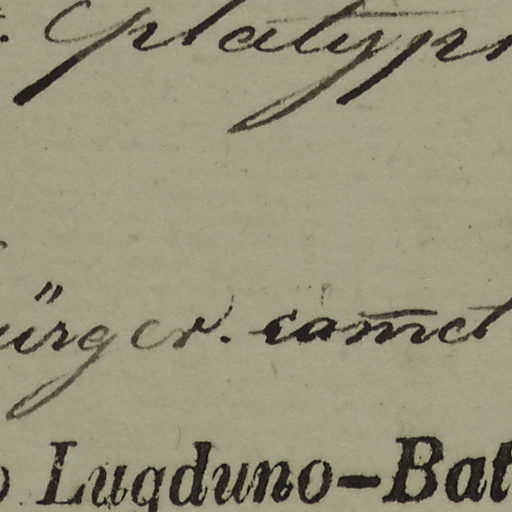 platyp
ürger. comct
o Lugduno-Bat